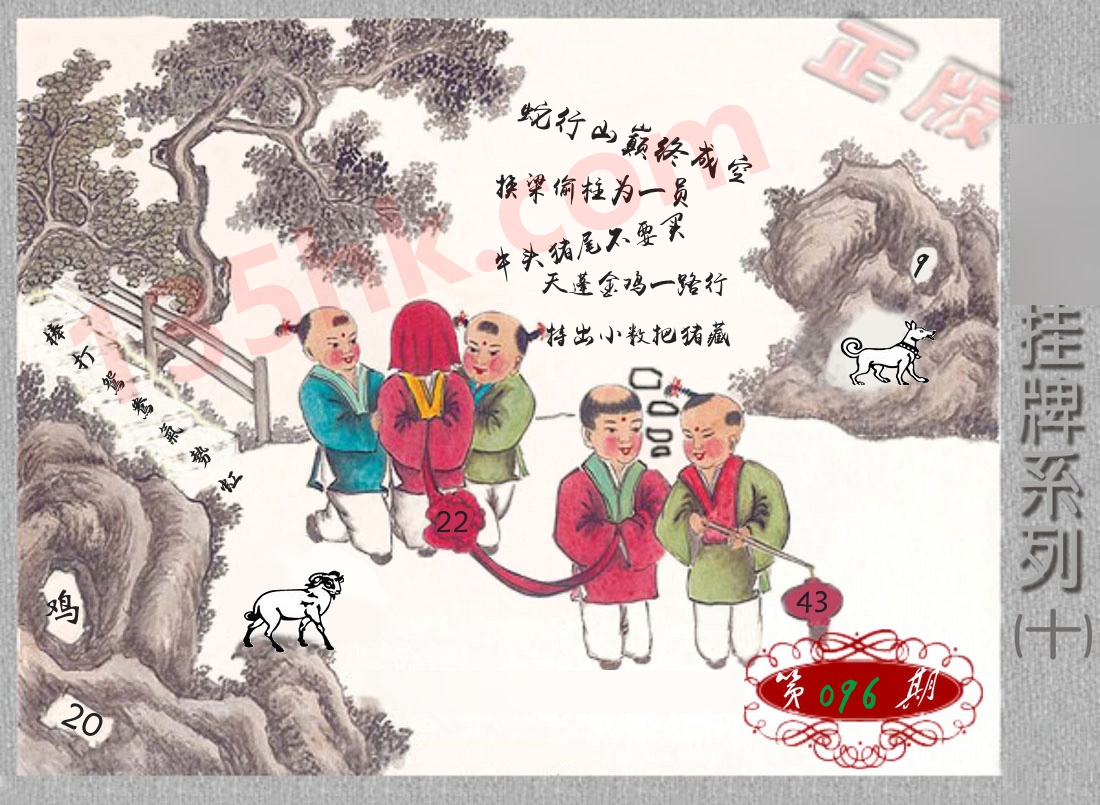 正版
蛇行山巅终成空
换梁偷柱为一员
牛头猪尾不要买
天蓬金鸡一路行
特出小数把猪藏
9
棒打鸳鸯氣势虹
22
43
鸡
20
第096期
挂牌系列(十)
155hk.com